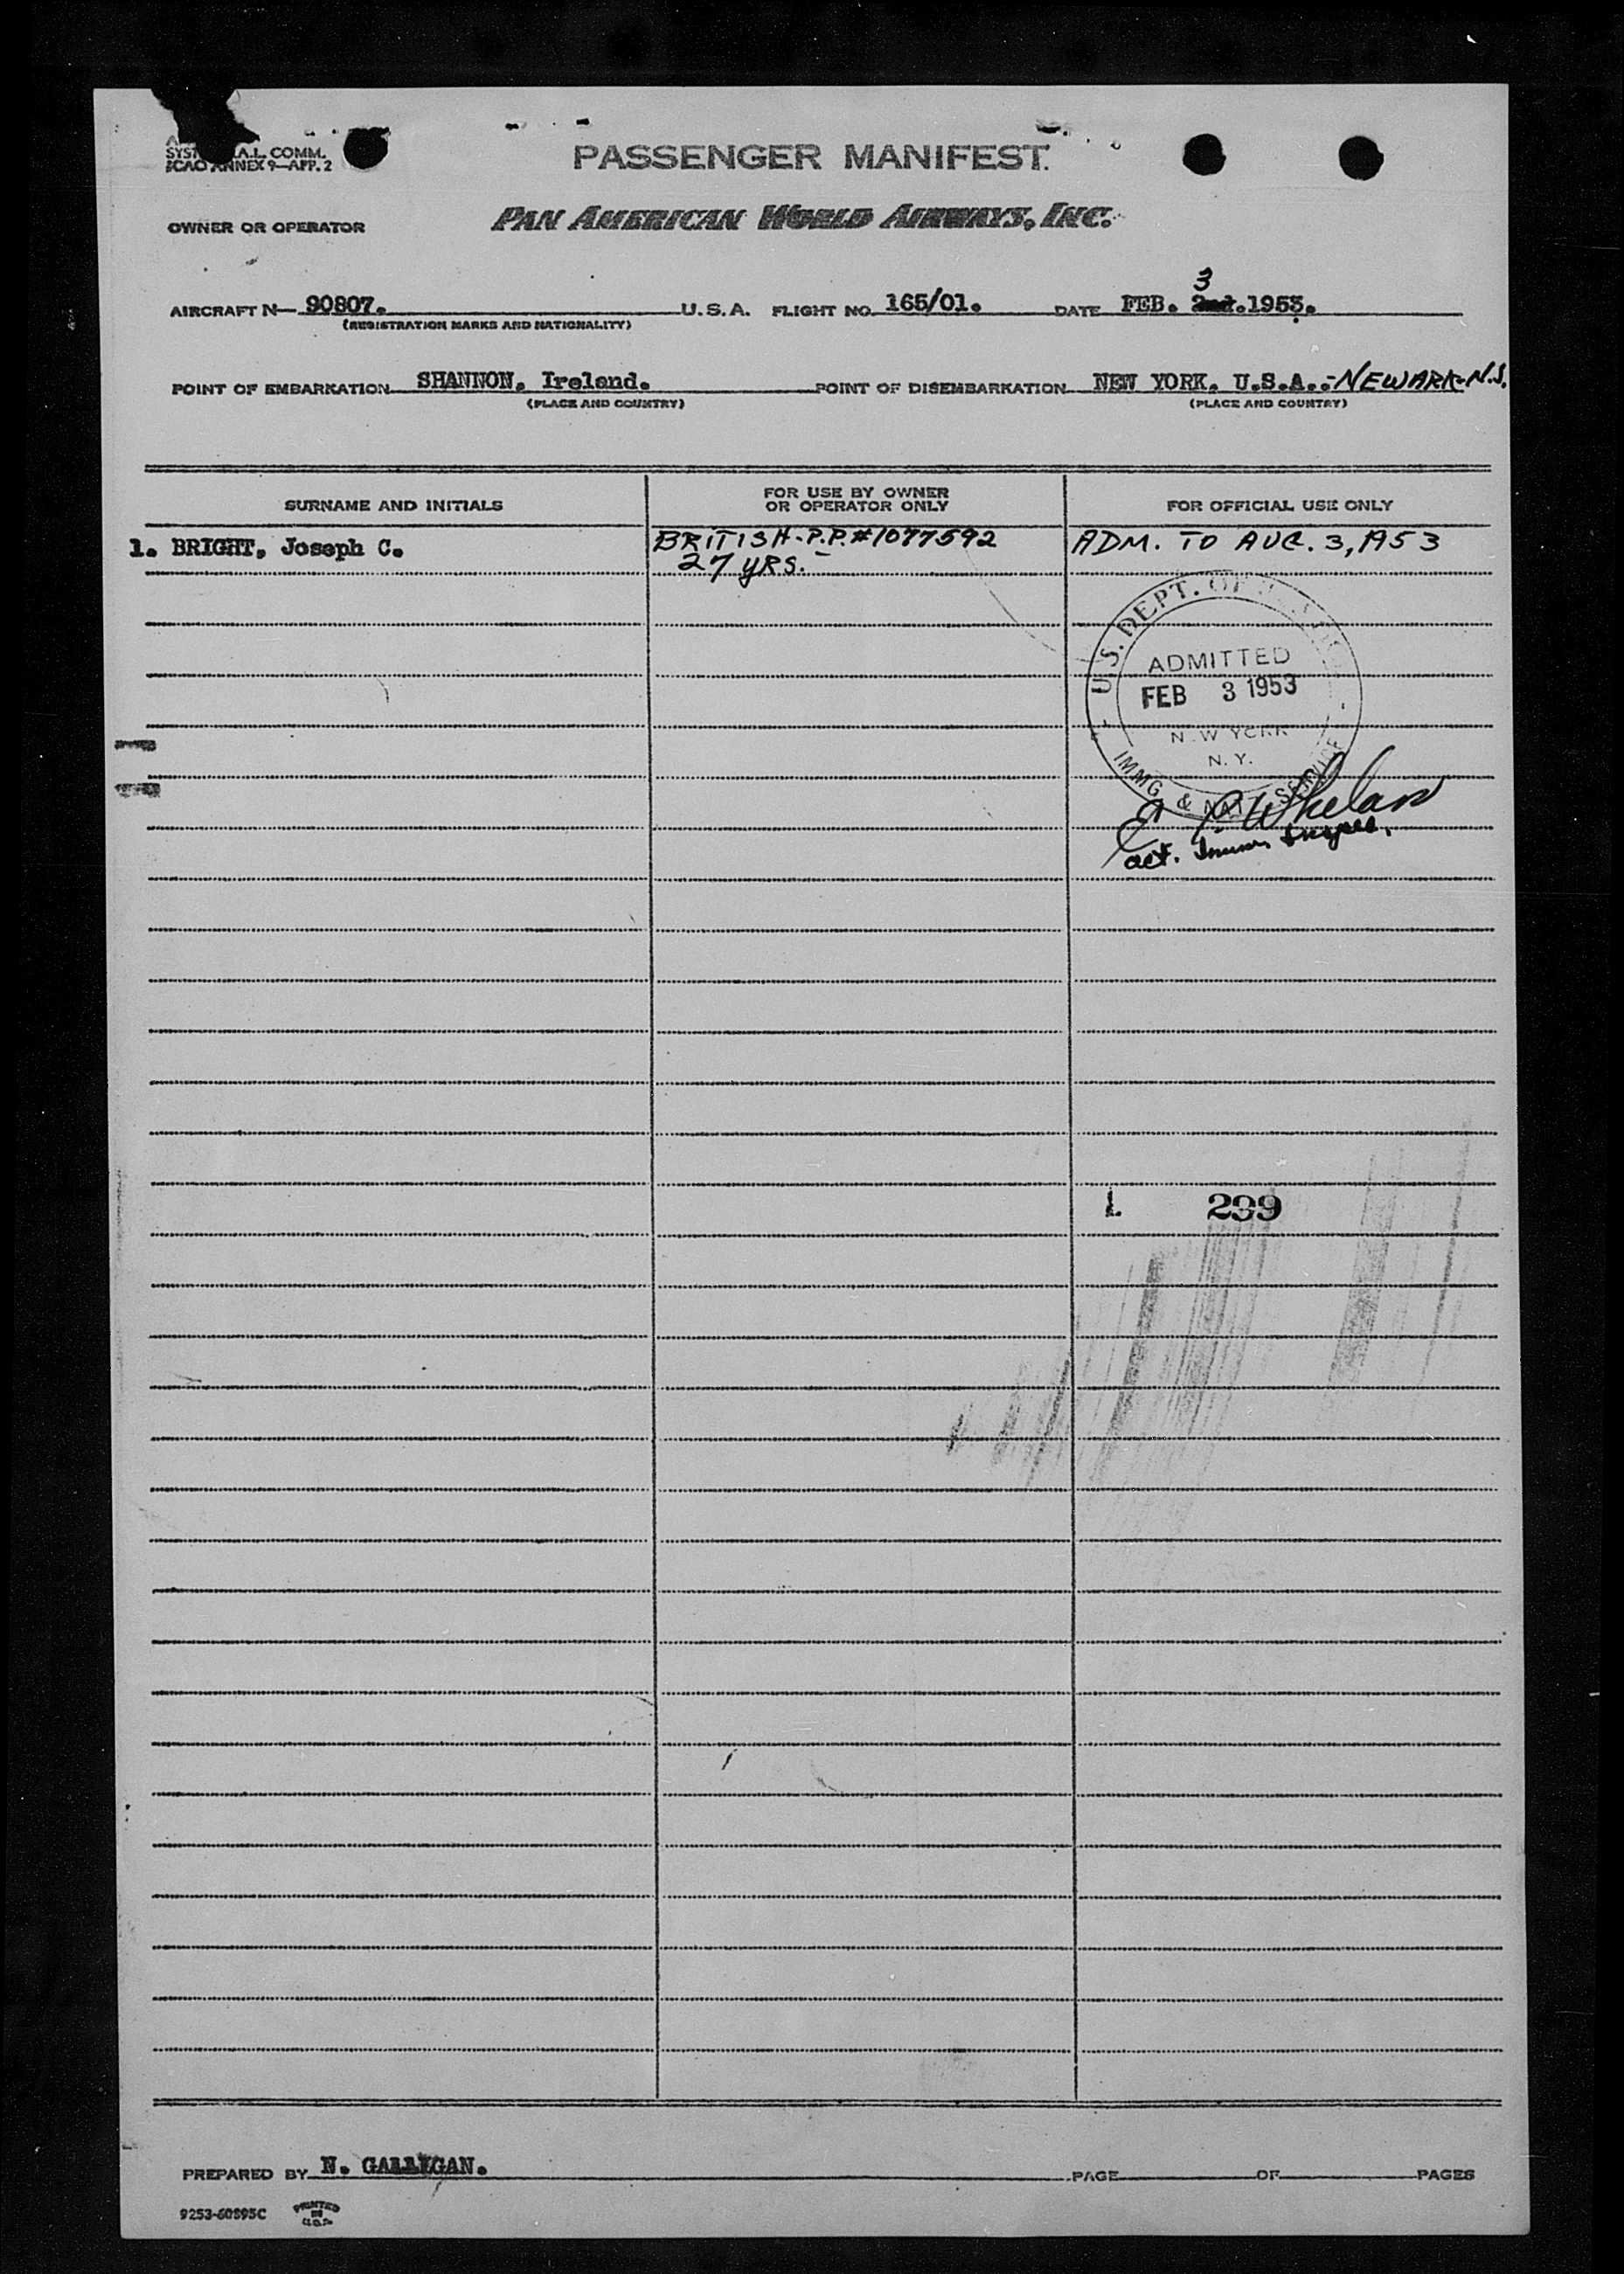 SYST A.L. COMM.
ICAO ANNEX 9—APP. 2
PASSENGER MANIFEST
OWNER OR OPERATOR PAN AMERICAN WORLD AIRWAYS, INC.
3
AIRCRAFT N— 90807. U.S.A. FLIGHT NO. 165/01. DATE FEB. 2nd.1953.
(REGISTRATION MARKS AND NATIONALITY)
POINT OF EMBARKATION SHANNON. Ireland. POINT OF DISEMBARKATION NEW YORK. U.S.A.-NEWARK-N.J.
(PLACE AND COUNTRY) (PLACE AND COUNTRY)
SURNAME AND INITIALS
FOR USE BY OWNER
OR OPERATOR ONLY
FOR OFFICIAL USE ONLY
1. BRIGHT, Joseph C. BRITISH-P.P.#1077592 ADM. TO AUG. 3, 1953
27 YRS.
U.S. DEPT. OF
ADMITTED
FEB 3 1953
NEW YORK
N.Y.
IMMG. & NAT. SERVICE
E P. Whelan
act. Immn. Inspec.
1. 299
PREPARED BY N. GALLIGAN. PAGE OF PAGES
9253-60895C PRINTED
IN
U.S.A.